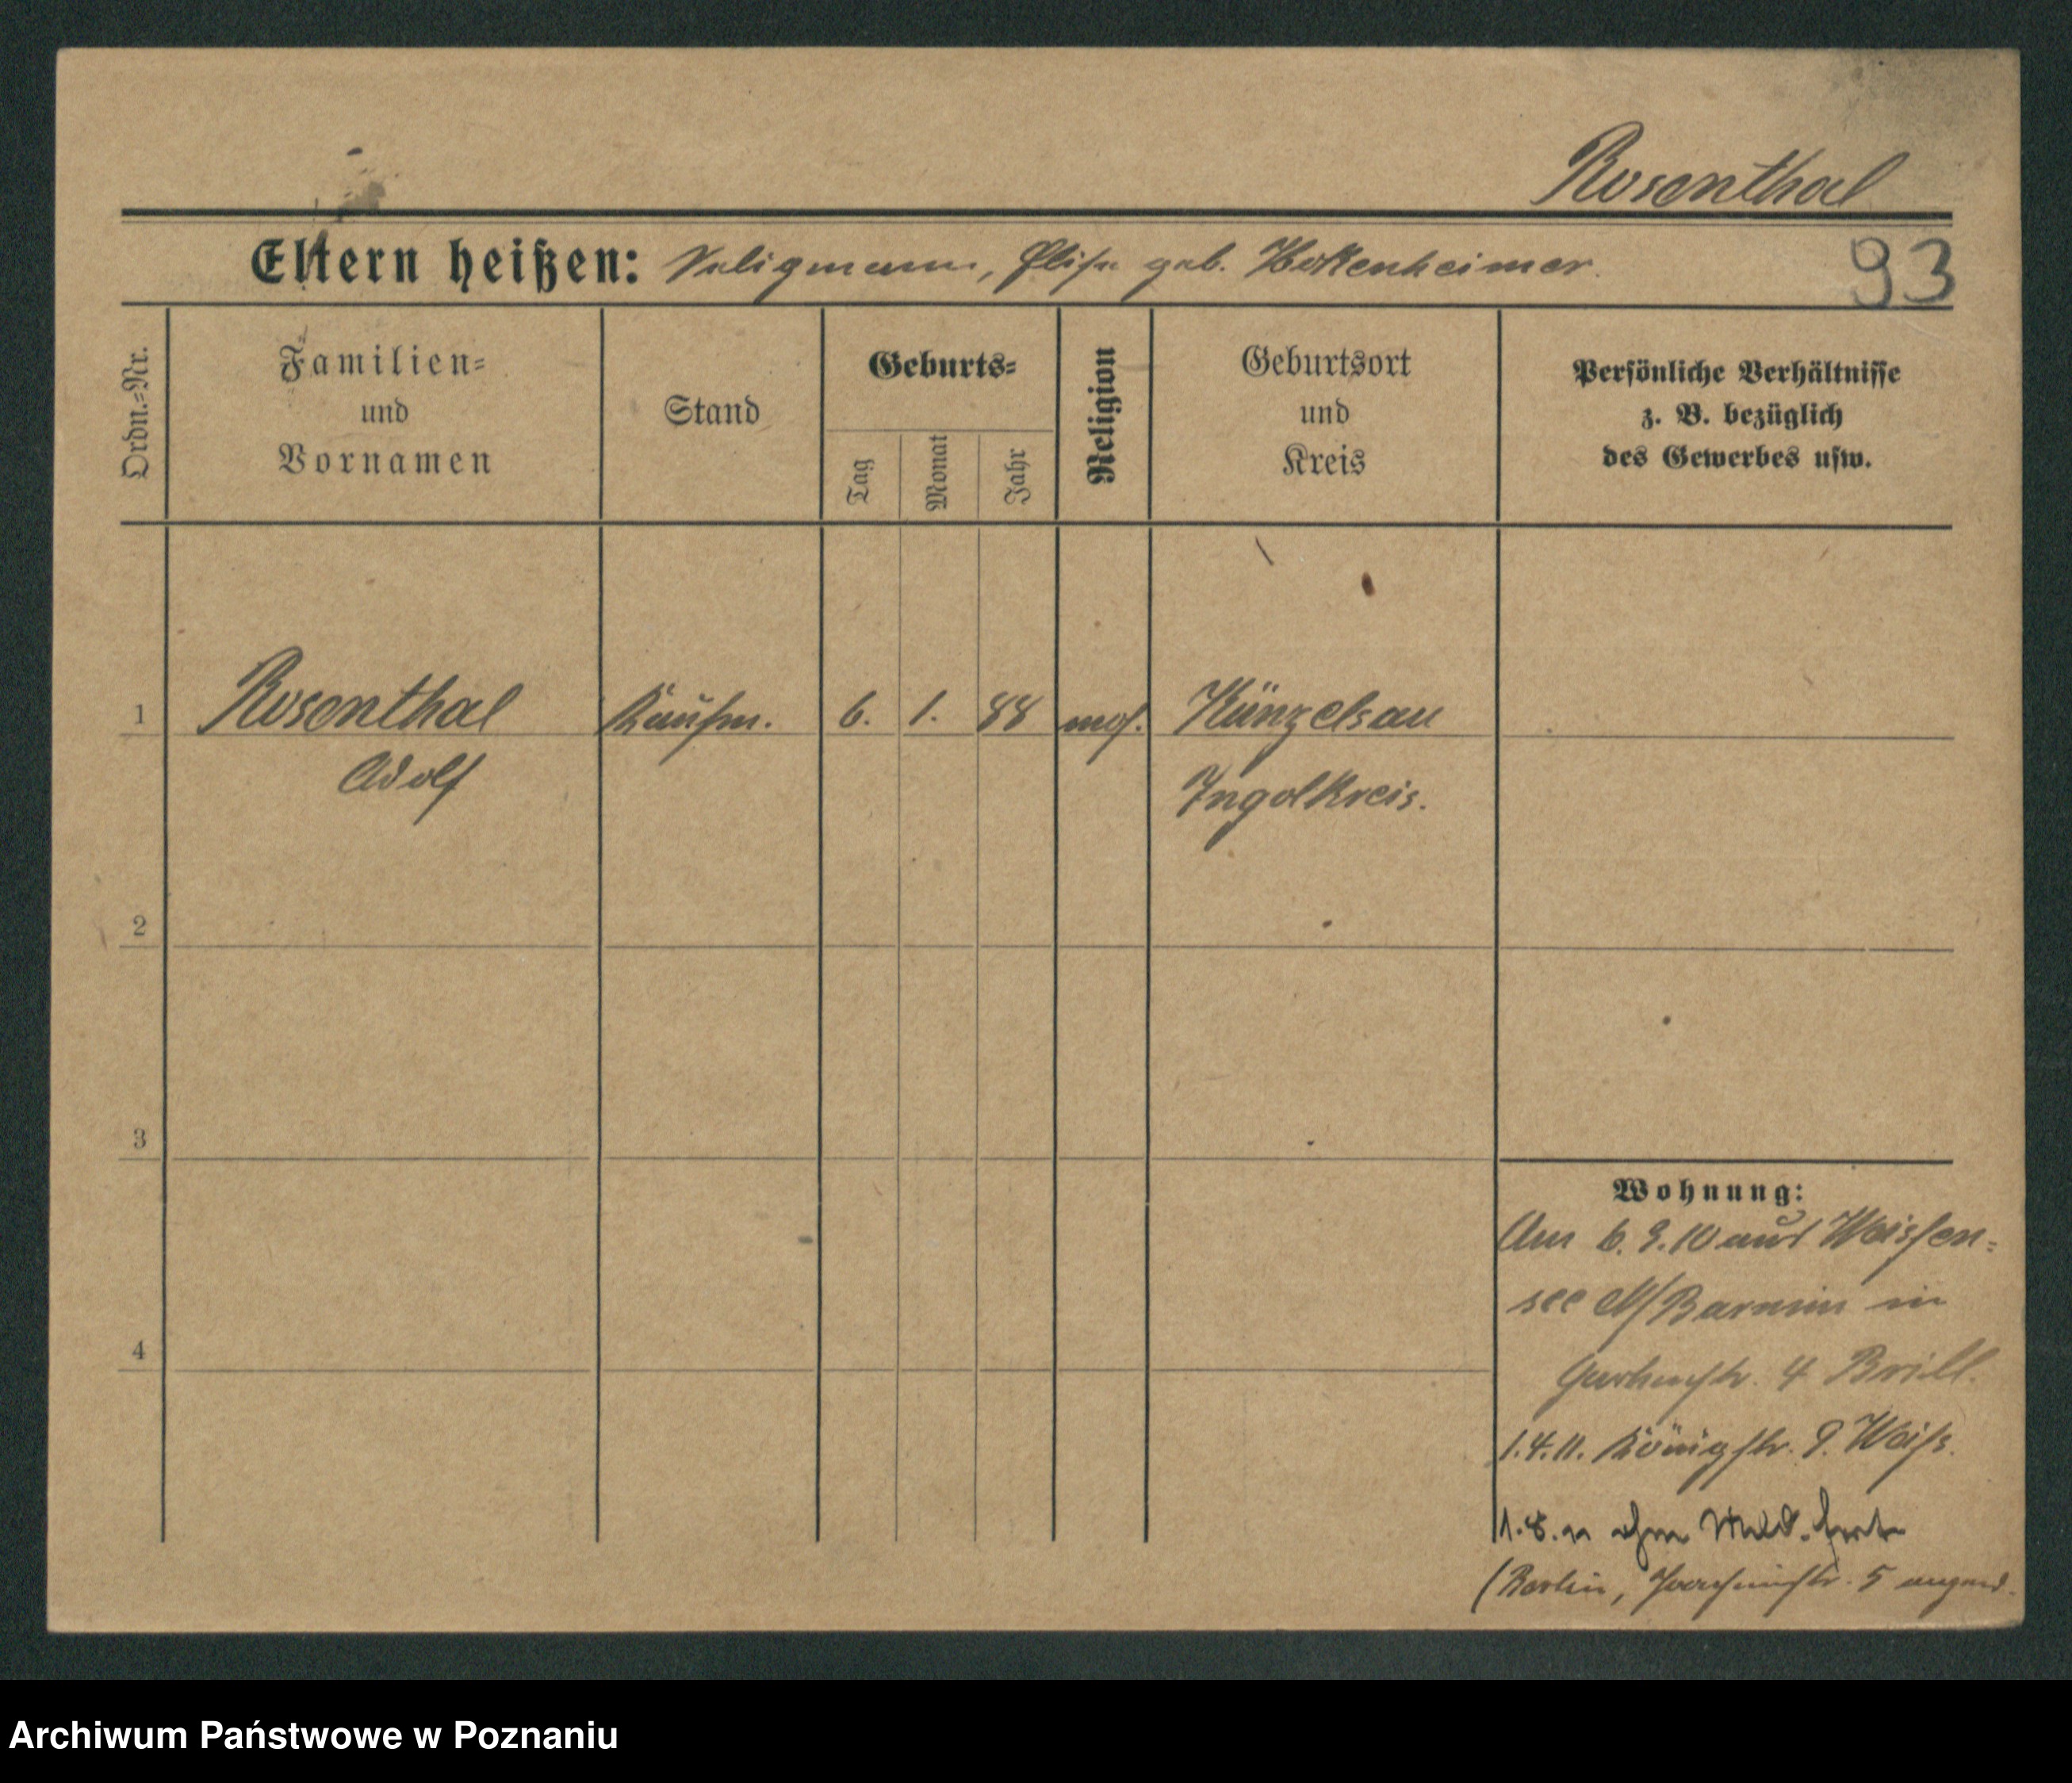 Rosenthal
Eltern heißen: Seligmann, Elise geb. Hokenheimer.
93
Ordn.-Nr.
Familien-
und
Vornamen
Stand
Geburts-
Tag
Monat
Jahr
Religion
Geburtsort
und
Kreis
Persönliche Verhältnisse
z. B. bezüglich
des Gewerbes usw.
1 Rosenthal Kaufm. 6. 1. 88 mos. Künzelsau
Adolf Ingolkreis.
2
3
4
Wohnung:
Am 6. 9. 10 aus Weissen-
see N/Barnim in
Gartenstr. 4 Brill.
1.4.11. Königstr. 9. Weiß.
1.8.11 ohne Meld. fort
(Berlin, Joachimstr. 5 angem.
Archiwum Państwowe w Poznaniu